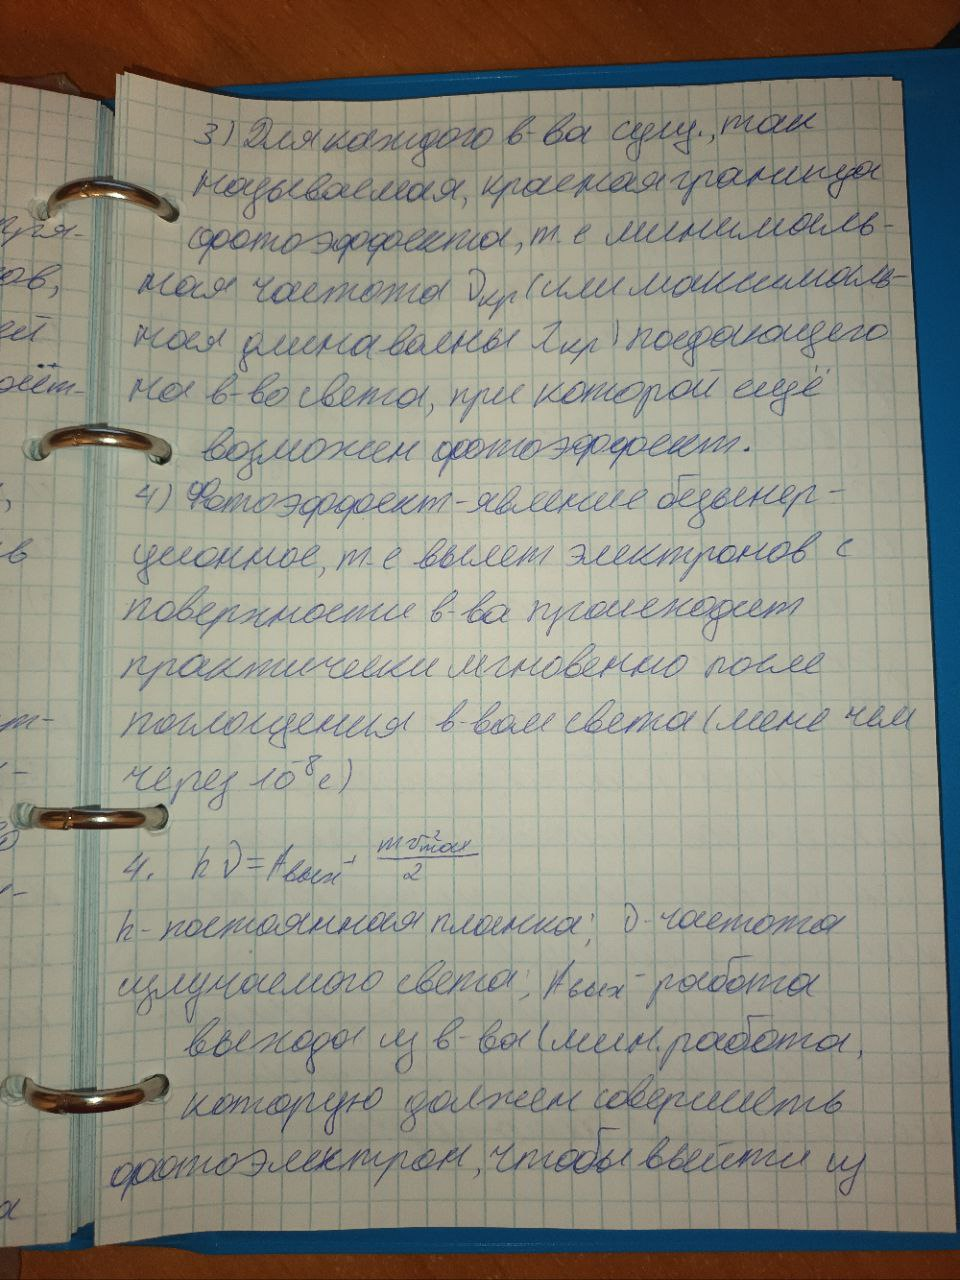 3) Для каждого в-ва сущ., так
называемая, красная граница
фотоэффекта, т.е минималь-
ная частота νкр (или максималь-
ная длина волны λкр) падающего
на в-во света, при которой ещё
возможен фотоэффект.
4) Фотоэффект-явление безынер-
ционное, т.е вылет электронов с
поверхности в-ва происходит
практически мгновенно после
поглощения в-вом света (мене чем
через 10⁻⁸с)
4. hν = Aвых + mv²max/2
h- постоянная планка; ν-частота
излучаемого света; Aвых- работа
выхода из в-ва (мин. работа,
которую должен совершить
фотоэлектрон, чтобы выйти из